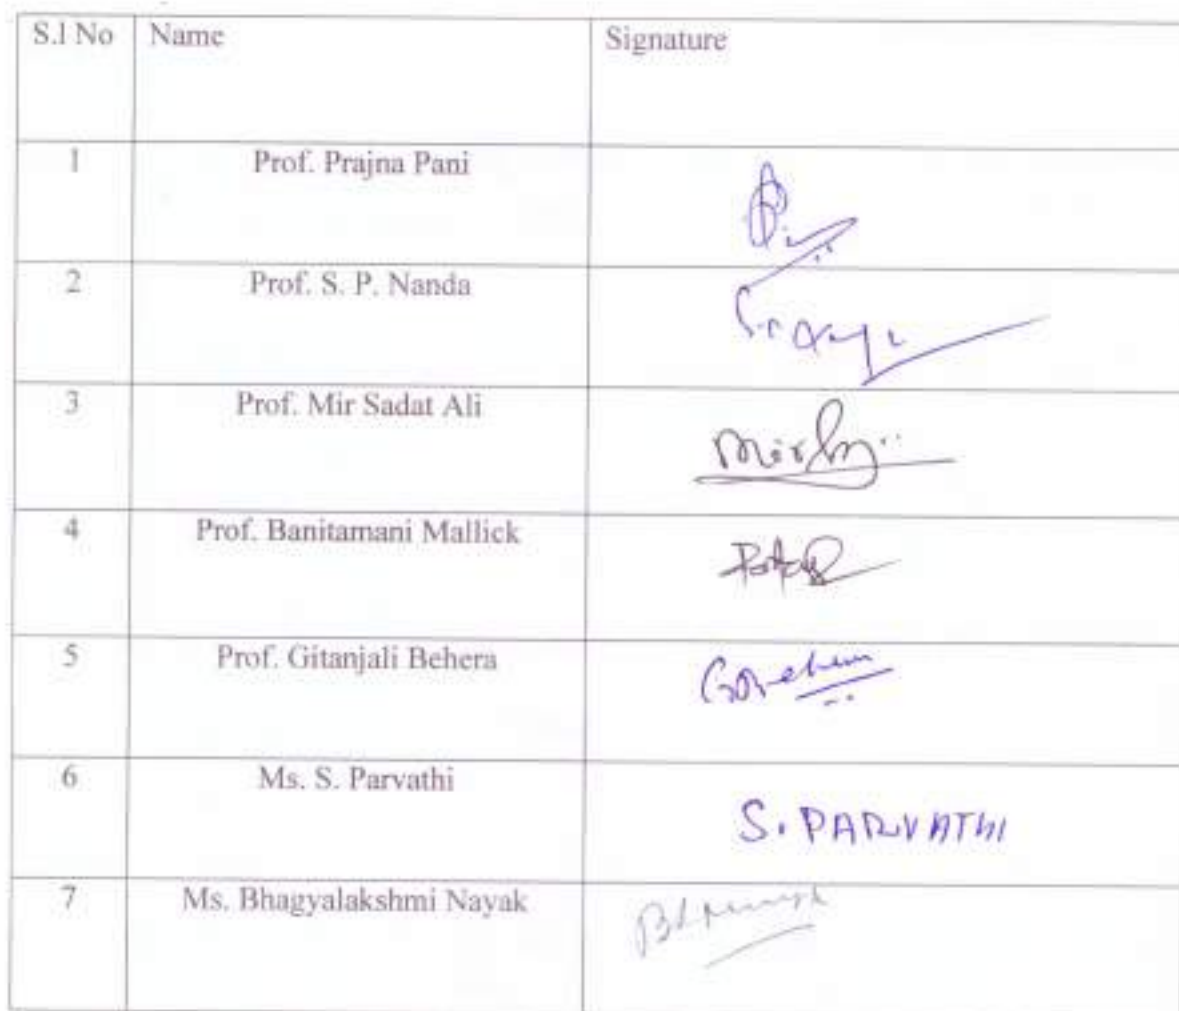 S.l No Name Signature
1 Prof. Prajna Pani
2 Prof. S. P. Nanda
3 Prof. Mir Sadat Ali
4 Prof. Banitamani Mallick
5 Prof. Gitanjali Behera
6 Ms. S. Parvathi
S. PARVATHI
7 Ms. Bhagyalakshmi Nayak